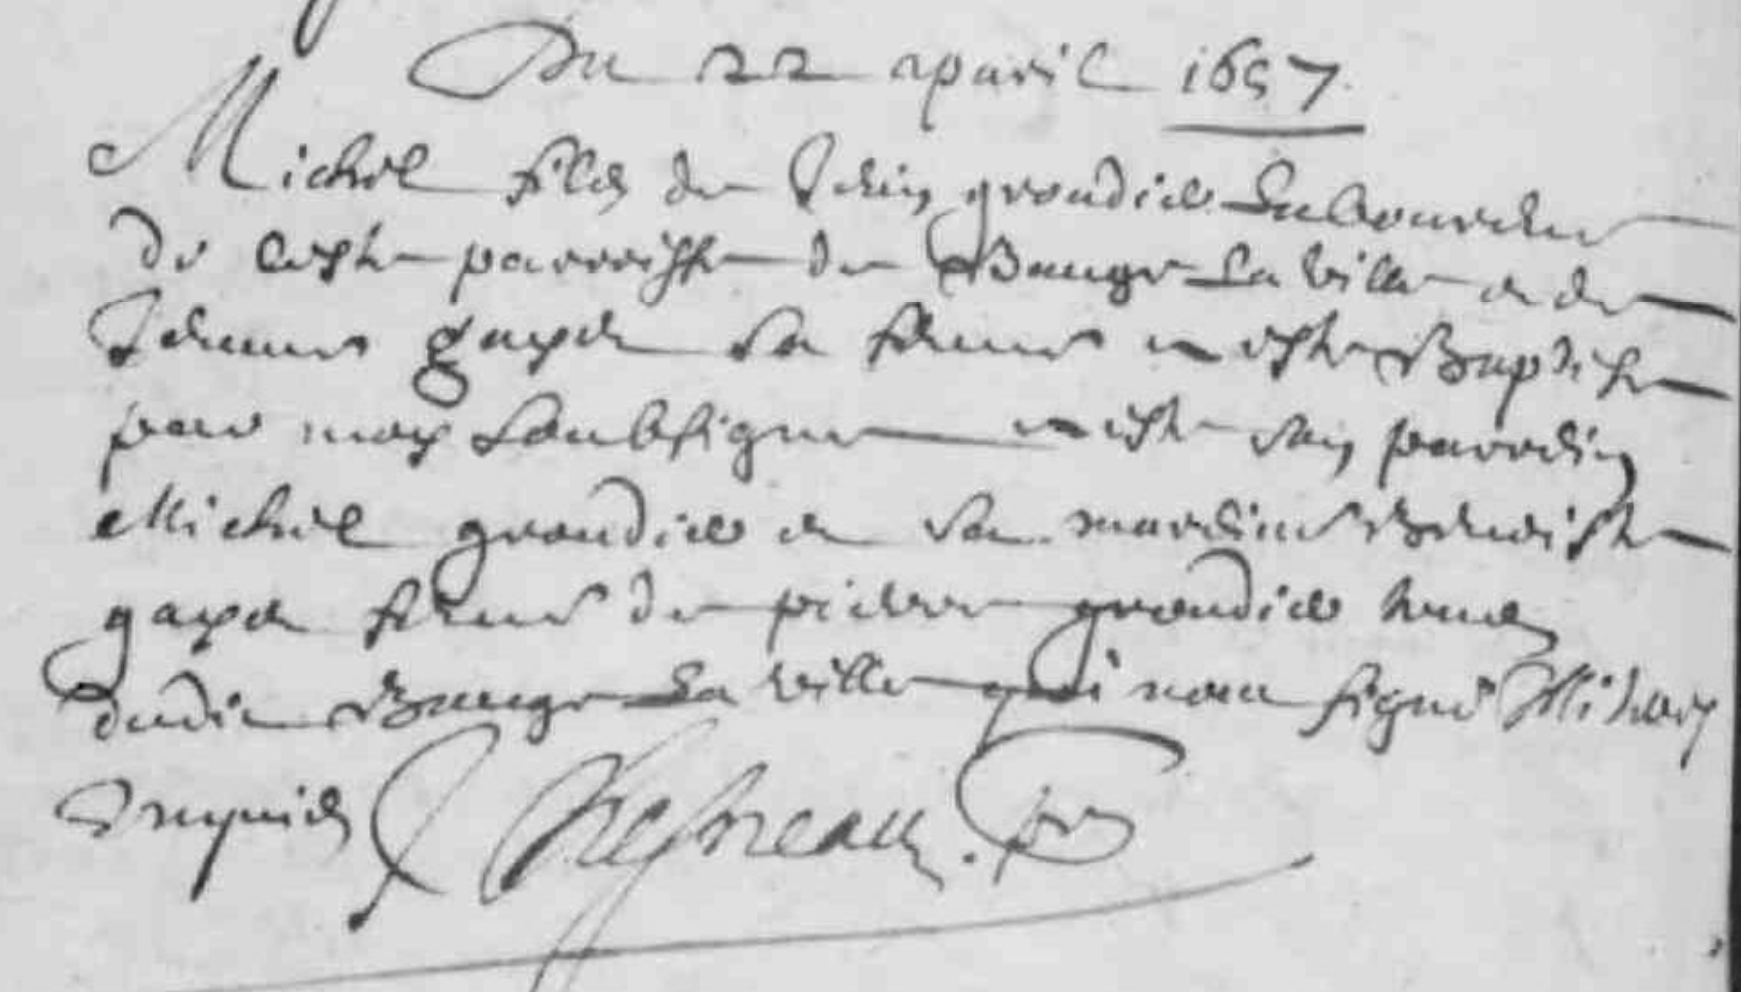 Du 22 apvril 1657
Michel filz de Jehan grandied Laboureur
de ceste parroisse de Baugé la ville et de
Jehanne gayet sa femme a esté Baptisé
par moy soubsigné a esté son parrein
Michel grandied et sa mareine Benoiste
gayet femme de pierre grandied tous
dudit Baugé la ville qui nont signé
enquis Chesneau. pbre